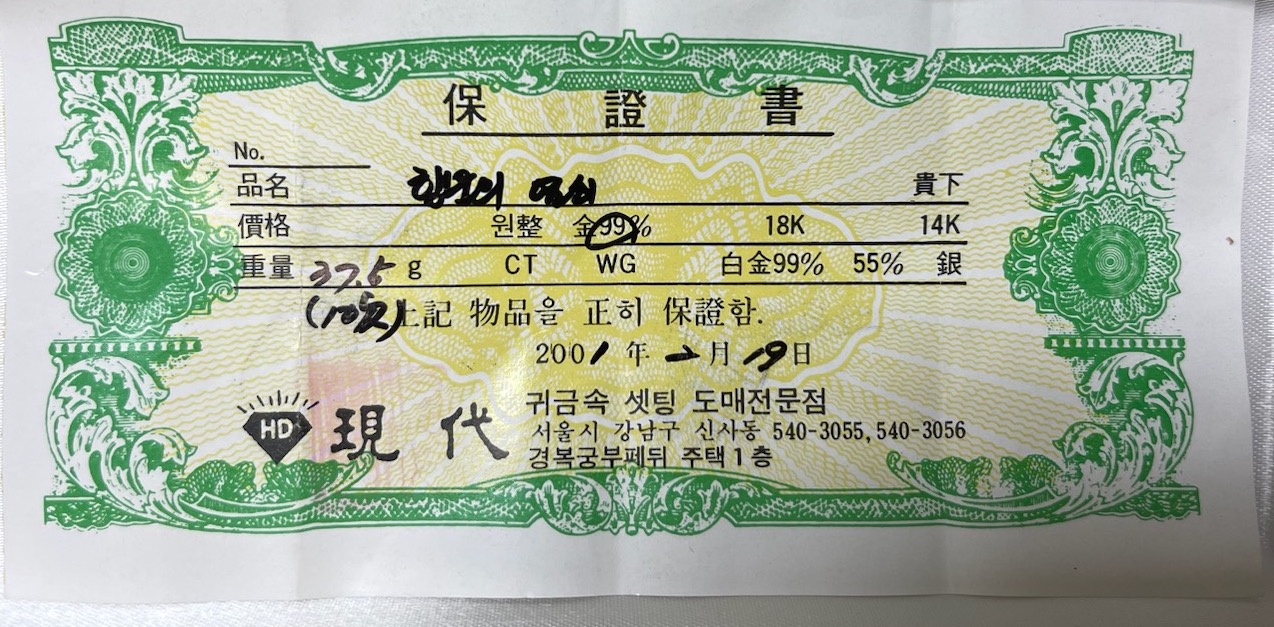 保證書
No.
品名 행운의 열쇠 貴下
價格 원整 金99% 18K 14K
重量 37.5 g CT WG 白金99% 55% 銀
(10돈) 上記 物品을 正히 保證함.
2001年 2月 19日
HD 現代 귀금속 셋팅 도매전문점
서울시 강남구 신사동 540-3055,540-3056
경복궁부페뒤 주택1층